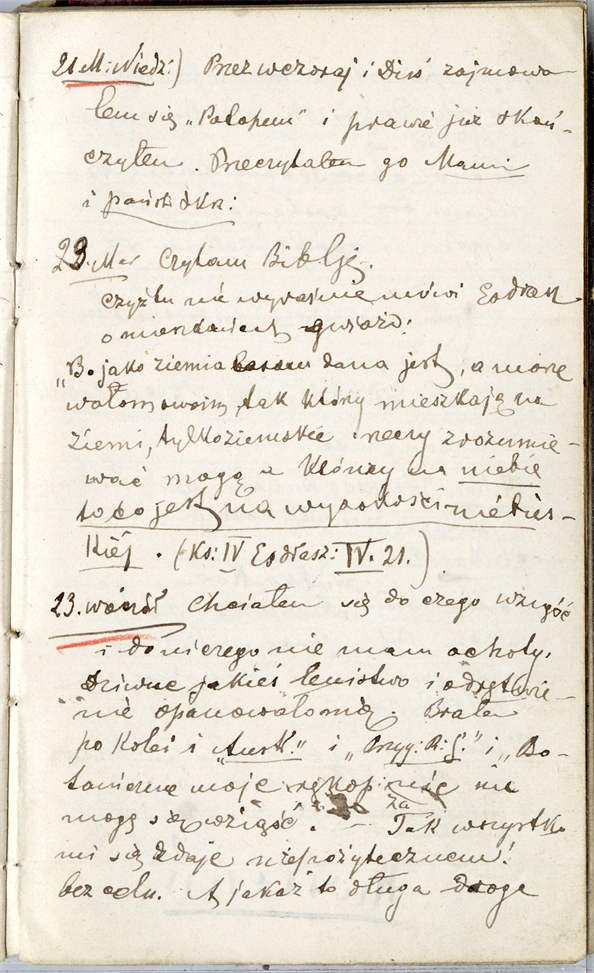 21 M: Niedz:) Przez wczoraj i Dziś zajmowa-
łem się „Potopem" i prawie już skoń-
czyłem. Przeczytałem go Mamie
i państ
23. Mar Czytam Biblję.
czyżtu nie wyraźnie mówi Esdrasz
o gwiazd:
„Bo jako ziemia dana jest, a morze
wałom swoim, tak którzy mieszkają na
ziemi, tylko ziemskie rzeczy zrozumie-
wać mogą a którzy na niebie
to co jest na wysokości niebies-
kiéj. (Ks: IV Esdrasz: IV. 21.)
23. wieczór Chciałem się do czego wziąść
i do niczego nie mam ochoty.
Dziwne jakieś lenistwo i odrętwie-
nie opanowało mię. Brałem
po kolei i i „Przyg. R: G." i „Bo-
taniczne moje rękopi nie
mogę się wziąść. — za Tak wszystko
mi się zdaje niepożytecznem!
bez celu. A jakaż to długa droga